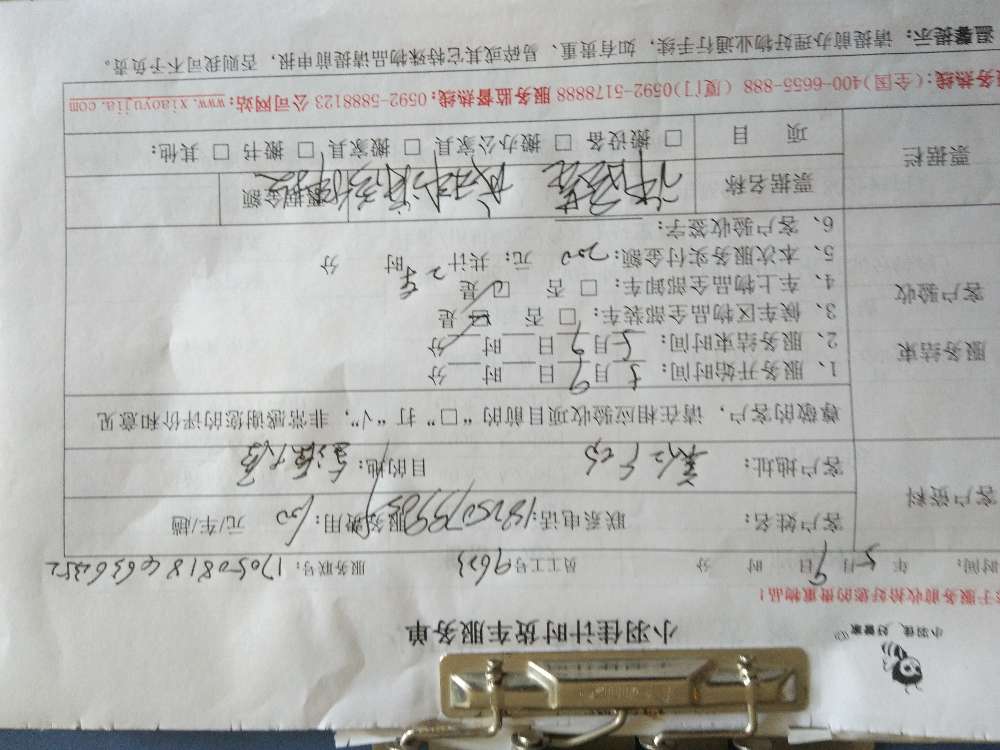 小羽佳，好管家
小羽佳计时货车服务单
于服务前收拾好您的贵重物品！
时间： 年 5月 9日 时 分 员工工号：9623 服务联号：
客户资料
客户姓名： 联系电话： 服务费用：100 元/车/趟
客户地址： 目的地：
尊敬的客户，请在相应验收项目前的“□”打“√”，非常感谢您的评价和意见
服务结束
客户验收
1、服务开始时间：5月9日 时 分
2、服务结束时间：5月9日 时 分
3、候车区物品全部装车：□ 否 ☑ 是
4、车上物品全部卸车：□ 否 ☑ 是
5、本次服务实付金额：200 元；共计：2 时 分
6、客户验收签字：
票据栏
票据名称 票据金额
项 目 □ 搬设备 □ 搬办公家具 □ 搬家具 □ 搬书 □ 其他：
务热线：(全国)400-6655-888 (厦门)0592-5178888 服务监督热线：0592-5888123 公司网站：www.xiaoyujia.com
温馨提示：请提前办理好物业通行手续，如有贵重、易碎或其它特殊物品请提前申报，否则我司不予负责。